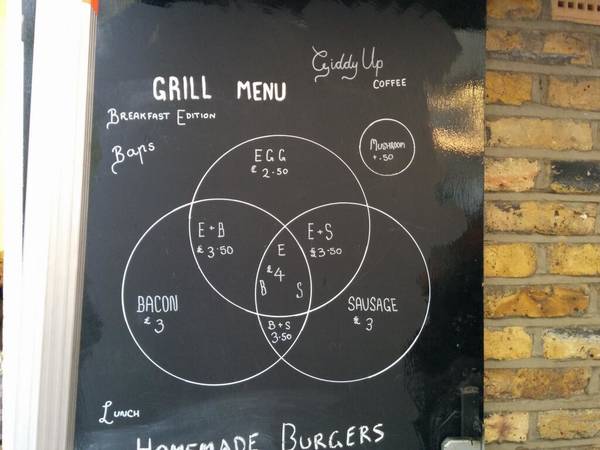 Giddy Up
COFFEE
GRILL MENU
BREAKFAST EDITION
Baps
EGG
£ 2.50
MUSHROOM
+.50
E+B
£3.50
E+S
£3.50
E
£4
B S
BACON
£3
SAUSAGE
£3
B+S
3.50
LUNCH
HOMEMADE BURGERS